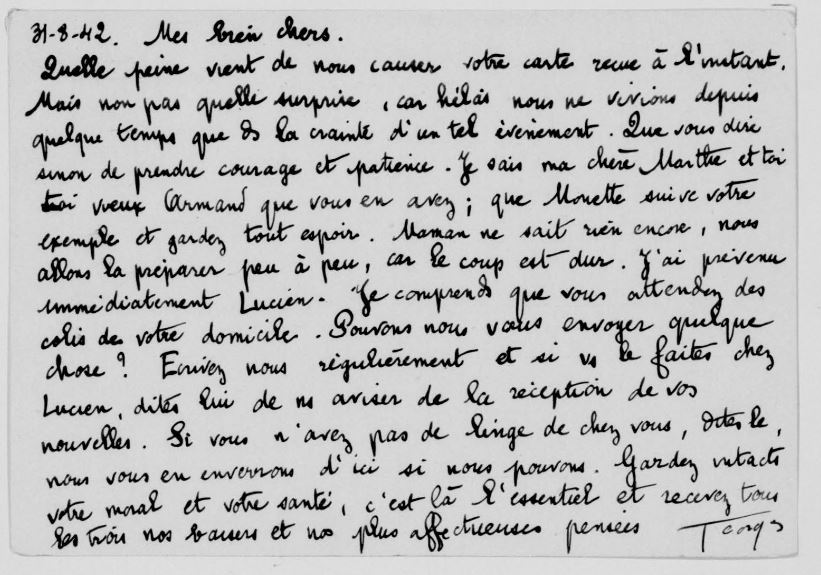 31-8-42. Mes bien chers.
Quelle peine vient de nous causer votre carte recue à l'instant.
Mais non pas quelle surprise, car hélas nous ne vivions depuis
quelque temps que ds la crainte d'un tel événement. Que vous dire
sinon de prendre courage et patience. Je sais ma chère Marthe et toi
toi vieux Armand que vous en avez; que Monette suive votre
exemple et gardez tout espoir. Maman ne sait rien encore, nous
allons la préparer peu à peu, car le coup est dur. J'ai prévenu
immédiatement Lucien. Je comprends que vous attendez des
colis de votre domicile. Pouvons nous vous envoyer quelque
chose? Ecrivez nous régulièrement et si vs le faites chez
Lucien, dites lui de ns aviser de la réception de vos
nouvelles. Si vous n'avez pas de linge de chez vous, dites le,
nous vous en enverrons d'ici si nous pouvons. Gardez intacts
votre moral et votre santé, c'est là l'essentiel et recevez tous
les trois nos baisers et nos plus affectueuses pensées